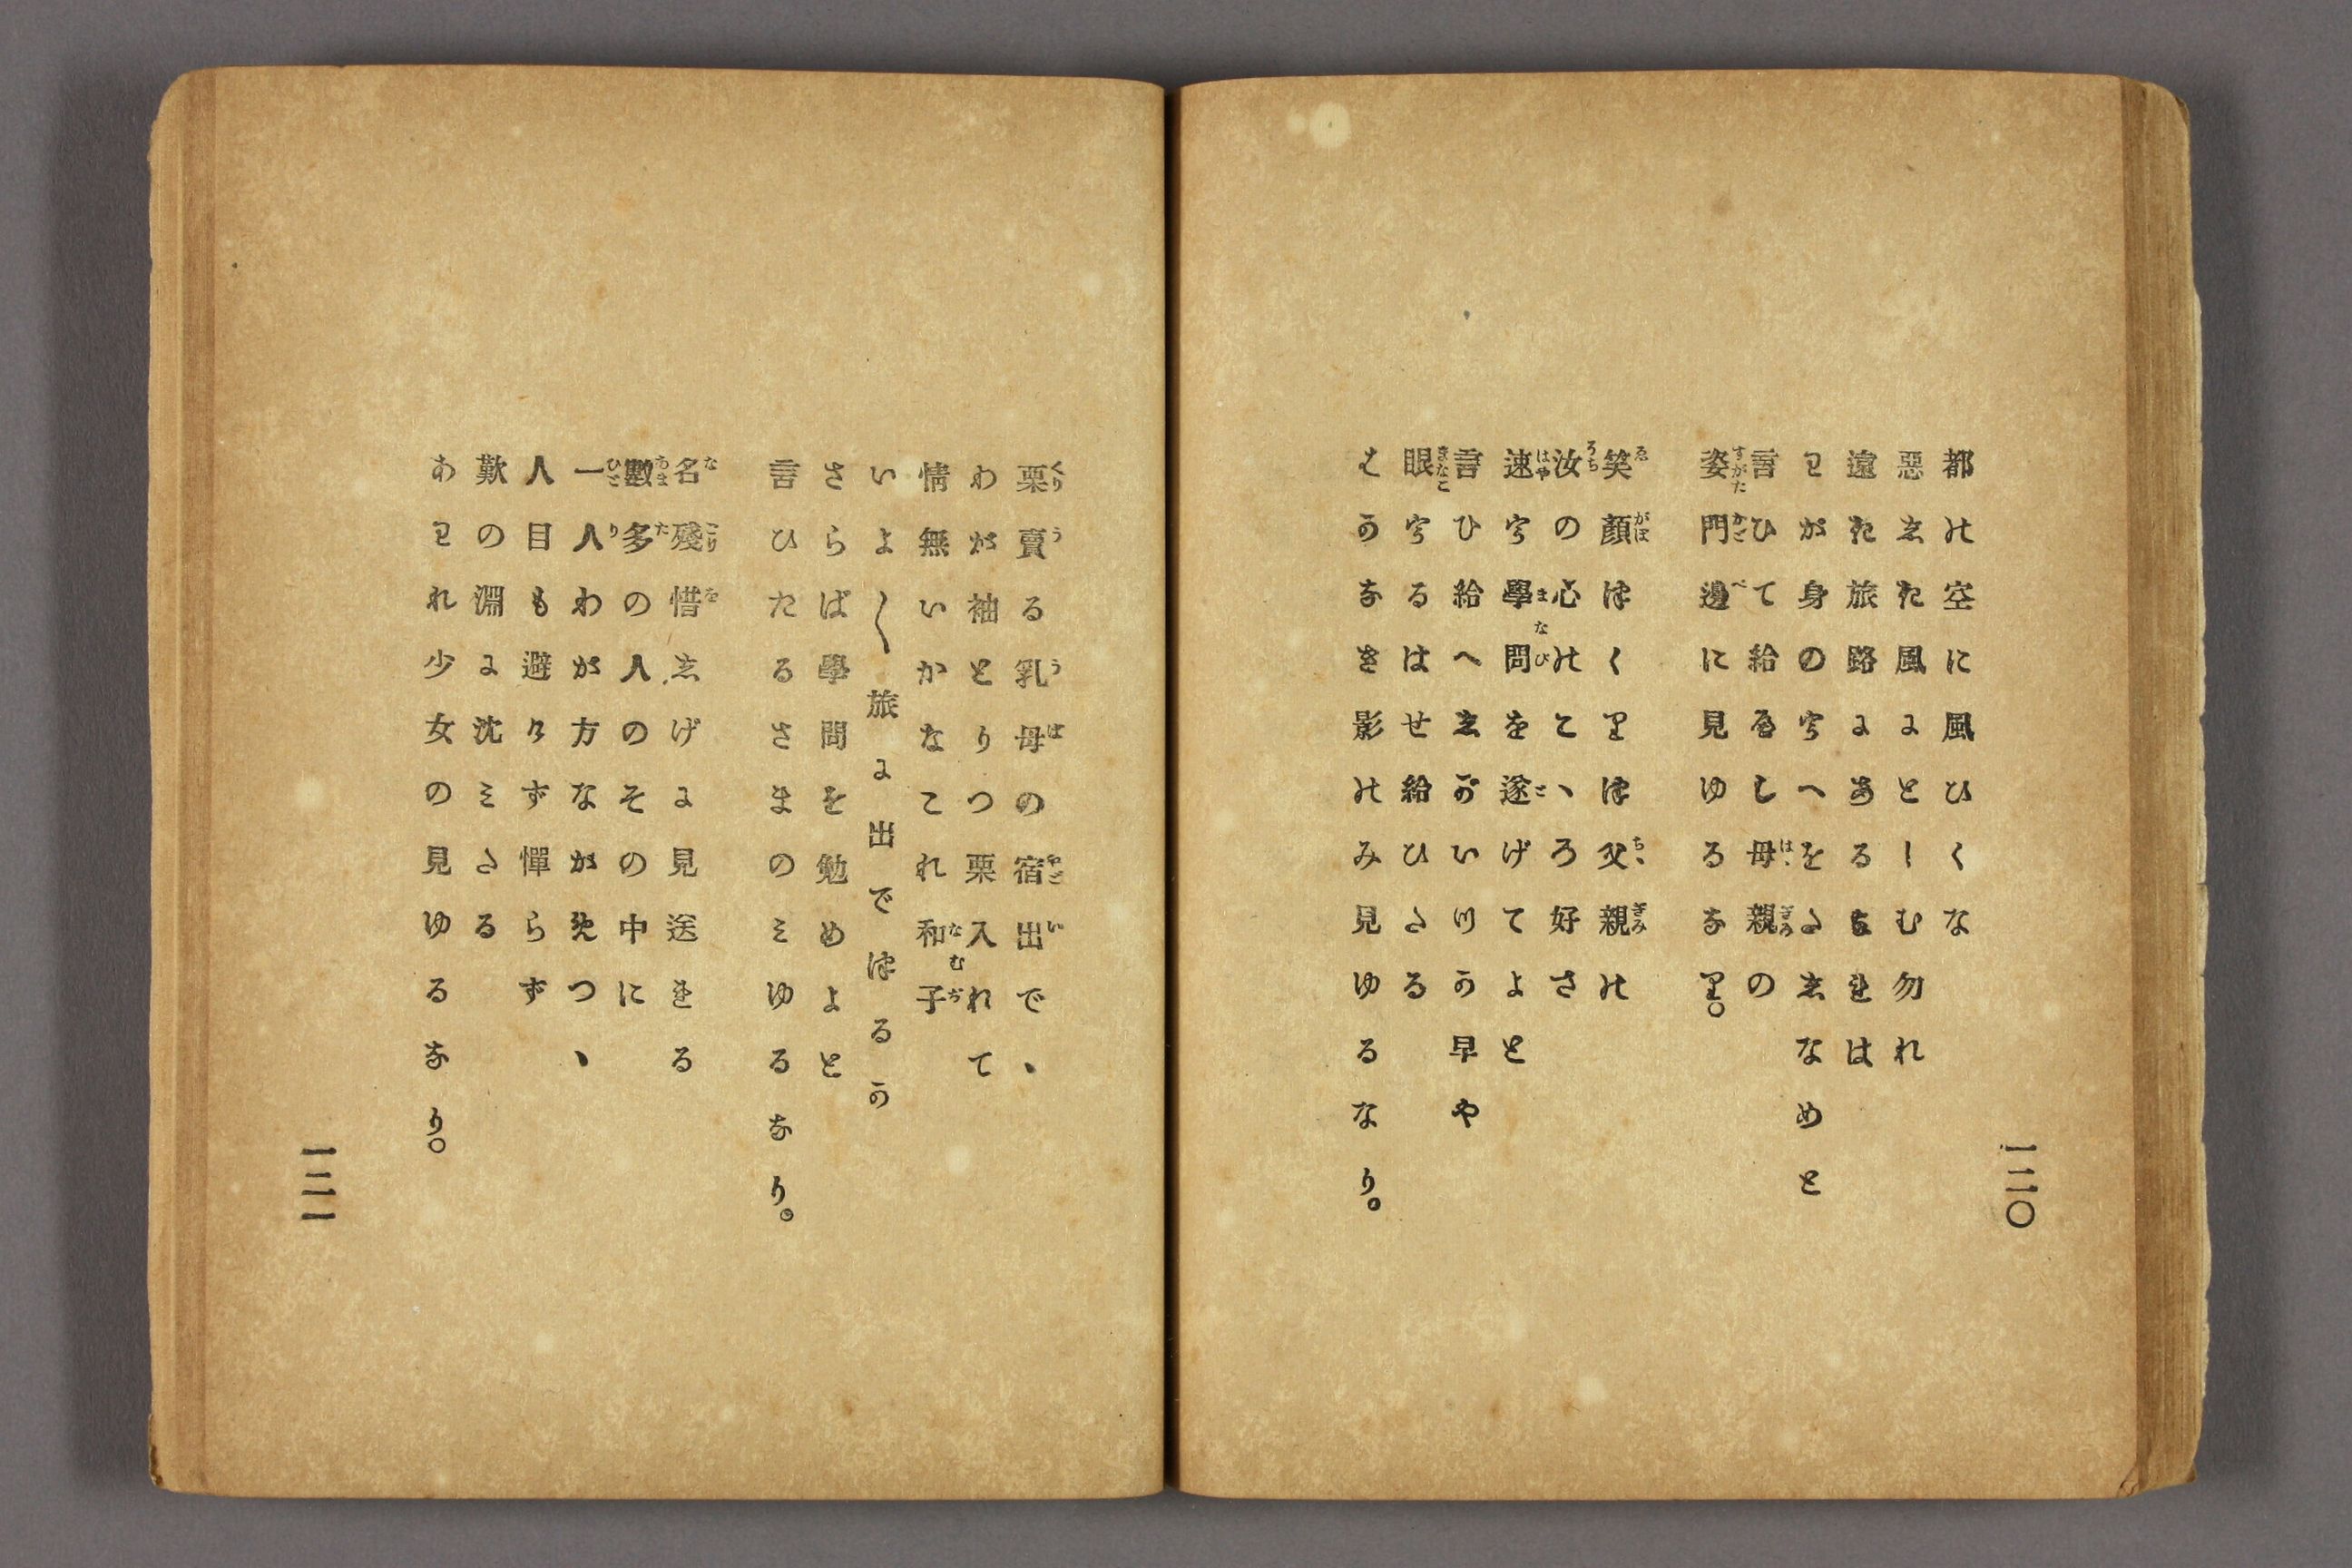 都の空に風ひくな
惡した風にとーむ勿れ
遠た旅路にあるらをは
わが身のうへをたしなめと
言ひて給るし母親の
姿門邊に見ゆるなり。
笑顔はくりは父親の
汝の心のとゝろ好さ
速う學問を遂げてよと
言ひ給へしがいつか早や
眼うるはせ給ひたる
はかなき影のみ見ゆるなり。
一二〇
栗賣る乳母の宿出でゝ
わが袖とりつ栗入れて
情無いかなこれ和子
いよ〱旅に出ではるか
さらば學問を勉めよと
言ひたるさまのみゆるなり。
名殘惜しげに見送をる
數多の人のその中に
一人わが方ながめつゝ
人目も避けず憚らず
歎の淵に沈みたる
あわれ少女の見ゆるなり。
一二一